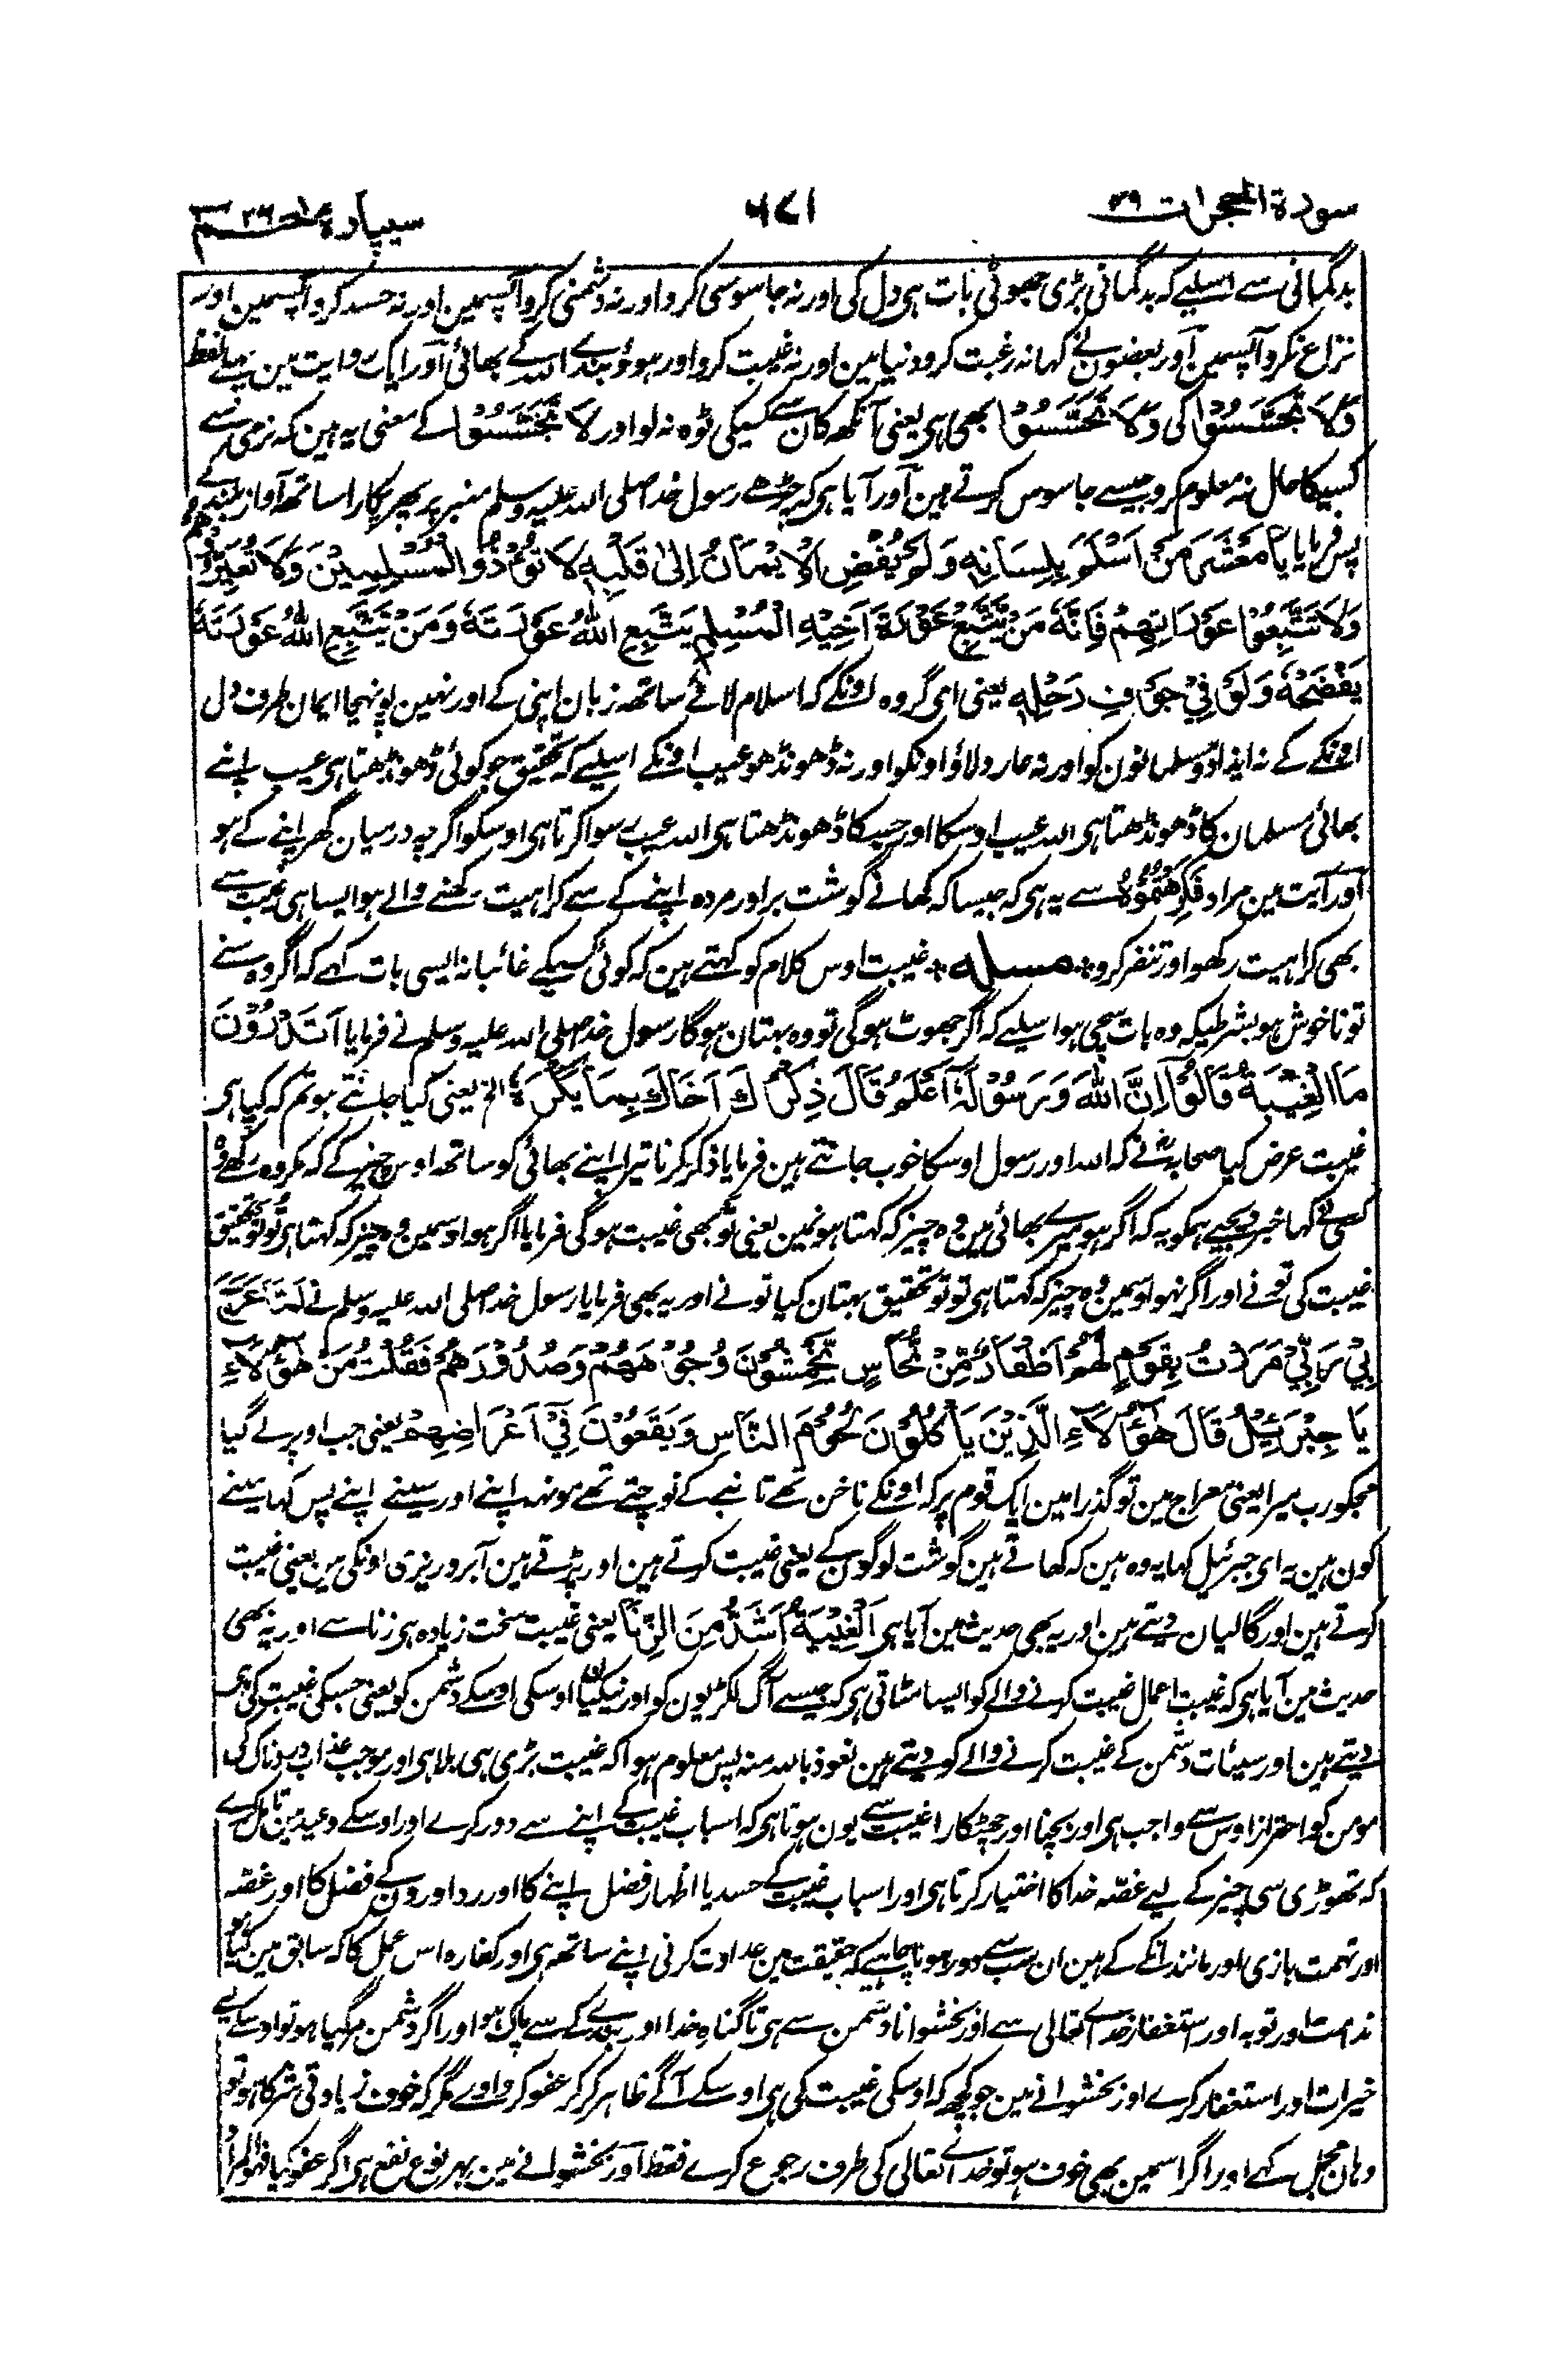 سورة الحجرات ۴۹
۶۷۱
سیپارۂ حٰم ۲۶
بدگمانی سے اسلیے کہ بدگمانی بڑی جھوٹی بات ہی دل کی اور نہ جاسوسی کرو اور نہ دشمنی کرو آپسمین اور نہ حسد کرو آپسمین اور
نزاع نکرو آپسمین اور بعضون نے کہا نہ رغبت کرو دنیا مین اور نہ غیبت کرو اور ہوؤ بندے اللہ کے بھائی اور ایک روایت مین پہلے لفظ
وَلَا تَجَسَّسُوْا کی وَلَا تَحَسَّسُوْا بھی ہی یعنی آنکھ کان سے کسیکی ٹوہ نہ لو اور لَا تَجَسَّسُوْا کے معنی یہ ہین کہ نرمی سے
کسیکا حال نہ معلوم کرو جیسے جاسوس کرتے ہین اور آیا ہی کہ چڑھے رسول خدا صلی اللہ علیہ وسلم منبر پر پھر پکارا ساتھ آواز بلند کے
پس فرمایا یَا مَعْشَرَ مَنْ اَسْلَمَ بِلِسَانِہٖ وَلَمْ یُفْضِ الْاِیْمَانُ اِلٰی قَلْبِہٖ لَا تُؤْذُوا الْمُسْلِمِیْنَ وَلَا تُعَیِّرُوْھُمْ
وَلَا تَتَّبِعُوْا عَوْرَاتِہِمْ فَاِنَّہٗ مَنْ یَّتَّبِعْ عَوْرَةَ اَخِیْہِ الْمُسْلِمِ یَتَّبِعِ اللّٰہُ عَوْرَتَہٗ وَمَنْ یَّتَّبِعِ اللّٰہُ عَوْرَتَہٗ
یَفْضَحْہُ وَلَوْ فِیْ جَوْفِ رَحْلِہٖ یعنی ای گروہ اونکے کہ اسلام لائے ساتھ زبان اپنی کے اور نہین پونہچا ایمان طرف دل
اونکے کے نہ ایذا دو مسلمانون کو اور نہ عار دلاؤ اونکو اور نہ ڈھونڈھو عیب اونکے اسلیے کہ تحقیق جو کوئی ڈھونڈھتا ہی عیب اپنے
بھائی مسلمان کا ڈھونڈھتا ہی اللہ عیب اوسکا اور جسکا ڈھونڈھتا ہی اللہ عیب رسوا کرتا ہی اوسکو اگرچہ درمیان گھر اپنے کے ہو
اور آیت مین مراد فَکَرِھْتُمُوْہُ سے یہ ہی کہ جیسا کہ کھانے گوشت برادر مردہ اپنے کے سے کراہیت رکھنے والے ہو ایسا ہی غیبت سے
بھی کراہیت رکھو اور تنفر کرو ❖ مسئلہ ❖ غیبت اوس کلام کو کہتے ہین کہ کوئی کسیکے غائبانہ ایسی بات کہے کہ اگر وہ سنے
تو ناخوش ہو بشرطیکہ وہ بات سچی ہو اسلیے کہ اگر جھوٹ ہو گی تو وہ بہتان ہو گا رسول خدا صلی اللہ علیہ وسلم نے فرمایا اَتَدْرُوْنَ
مَا الْغِیْبَةُ قَالُوْا اِنَّ اللّٰہَ وَرَسُوْلَہٗ اَعْلَمُ قَالَ ذِکْرُكَ اَخَاكَ بِمَا یَکْرَہُ الخ یعنی کیا جانتے ہو تم کہ کیا ہی
غیبت عرض کیا صحابہ نے کہ اللہ اور رسول اوسکا خوب جانتے ہین فرمایا ذکر کرنا تیرا اپنے بھائی کو ساتھ اوس چیز کے کہ مکروہ رکھے وہ
کسی نے کہا خبر دیجیے ہمکو یہ کہ اگر ہو میرے بھائی مین وہ چیز کہ کہتا ہونمین یعنی تو بھی غیبت ہو گی فرمایا اگر ہو اوسمین وہ چیز کہ کہتا ہی تو تو تحقیق
غیبت کی تو نے اور اگر نہو اوسمین وہ چیز کہ کہتا ہی تو تو تحقیق بہتان کیا تو نے اور یہ بھی فرمایا رسول خدا صلی اللہ علیہ وسلم نے لَمَّا عَرَجَ
بِیْ رَبِّیْ مَرَرْتُ بِقَوْمٍ لَہُمْ اَظْفَارٌ مِّنْ نُّحَاسٍ یَّخْمِشُوْنَ وُجُوْھَہُمْ وَصُدُوْرَھُمْ فَقُلْتُ مَنْ ھٰؤُلَاءِ
یَا جِبْرَئِیْلُ قَالَ ھٰؤُلَاءِ الَّذِیْنَ یَاْکُلُوْنَ لُحُوْمَ النَّاسِ وَیَقَعُوْنَ فِیْ اَعْرَاضِہِمْ یعنی جب اوپر لے گیا
مجکو رب میرا یعنی معراج مین تو گذرا مین ایک قوم پر کہ اونکے ناخن تھے تانبے کے نوچتے تھے مونہہ اپنے اور سینے اپنے پس کہا مینے
کون ہین یہ ای جبرئیل کہا یہ وہ ہین کہ کھاتے ہین گوشت لوگون کے یعنی غیبت کرتے ہین اور پڑتے ہین آبروریزی اونکی مین یعنی غیبت
کرتے ہین اور گالیان دیتے ہین اور یہ بھی حدیث مین آیا ہی اَلْغِیْبَةُ اَشَدُّ مِنَ الزِّنَا یعنی غیبت سخت زیادہ ہی زنا سے اور یہ بھی
حدیث مین آیا ہی کہ غیبت اعمال غیبت کرنے والے کو ایسا مٹاتی ہی کہ جیسے آگ لکڑیون کو اور نیکیان اوسکی اوسکے دشمن کو یعنی جسکی غیبت کی ہی
دیتے ہین اور سیئات دشمن کے غیبت کرنے والے کو دیتے ہین نعوذ باللہ منہ پس معلوم ہوا کہ غیبت بڑی ہی بلا ہی اور موجب عذاب دردناک کی
مومن کو احتراز اوس سے واجب ہی اور بچنا اور چھٹکارا غیبت سے یون ہوتا ہی کہ اسباب غیبت کے اپنے سے دور کرے اور اوسکے وعید مین تامل کرے
کہ تھوڑی سی چیز کے لیے غصہ خدا کا اختیار کرتا ہی اور اسباب غیبت کے حسد یا اظہار فضل اپنے کا اور رد اورون کے فضل کا اور غصہ
اور تہمت بازی اور مانند انکے کے ہین ان سب سے دور ہونا چاہیے کہ حقیقت مین عداوت کرنی اپنے ساتھ ہی اور کفارہ اس عمل کا کہ سابق مین کیا ہو
ندامت اور توبہ اور استغفار خداے تعالی سے اور بخشوانا دشمن سے ہی تا گناہ خدا اور بندے کے سے پاک ہو اور اگر دشمن مر گیا ہو تو اوسکے لیے
خیرات اور استغفار کرے اور بخشوانے مین جو کچھ کہ اوسکی غیبت کی ہی اوسکے آگے ظاہر کر کر عفو کرواوے مگر کہ خوف زیادتی شر کا ہو تو
وہان مجمل کہے اور اگر اسمین بھی خوف ہو تو خداے تعالی کی طرف رجوع کرے فقط اور بخشوانے مین بہر نوع نفع ہی اگر عفو کیا فہو المراد